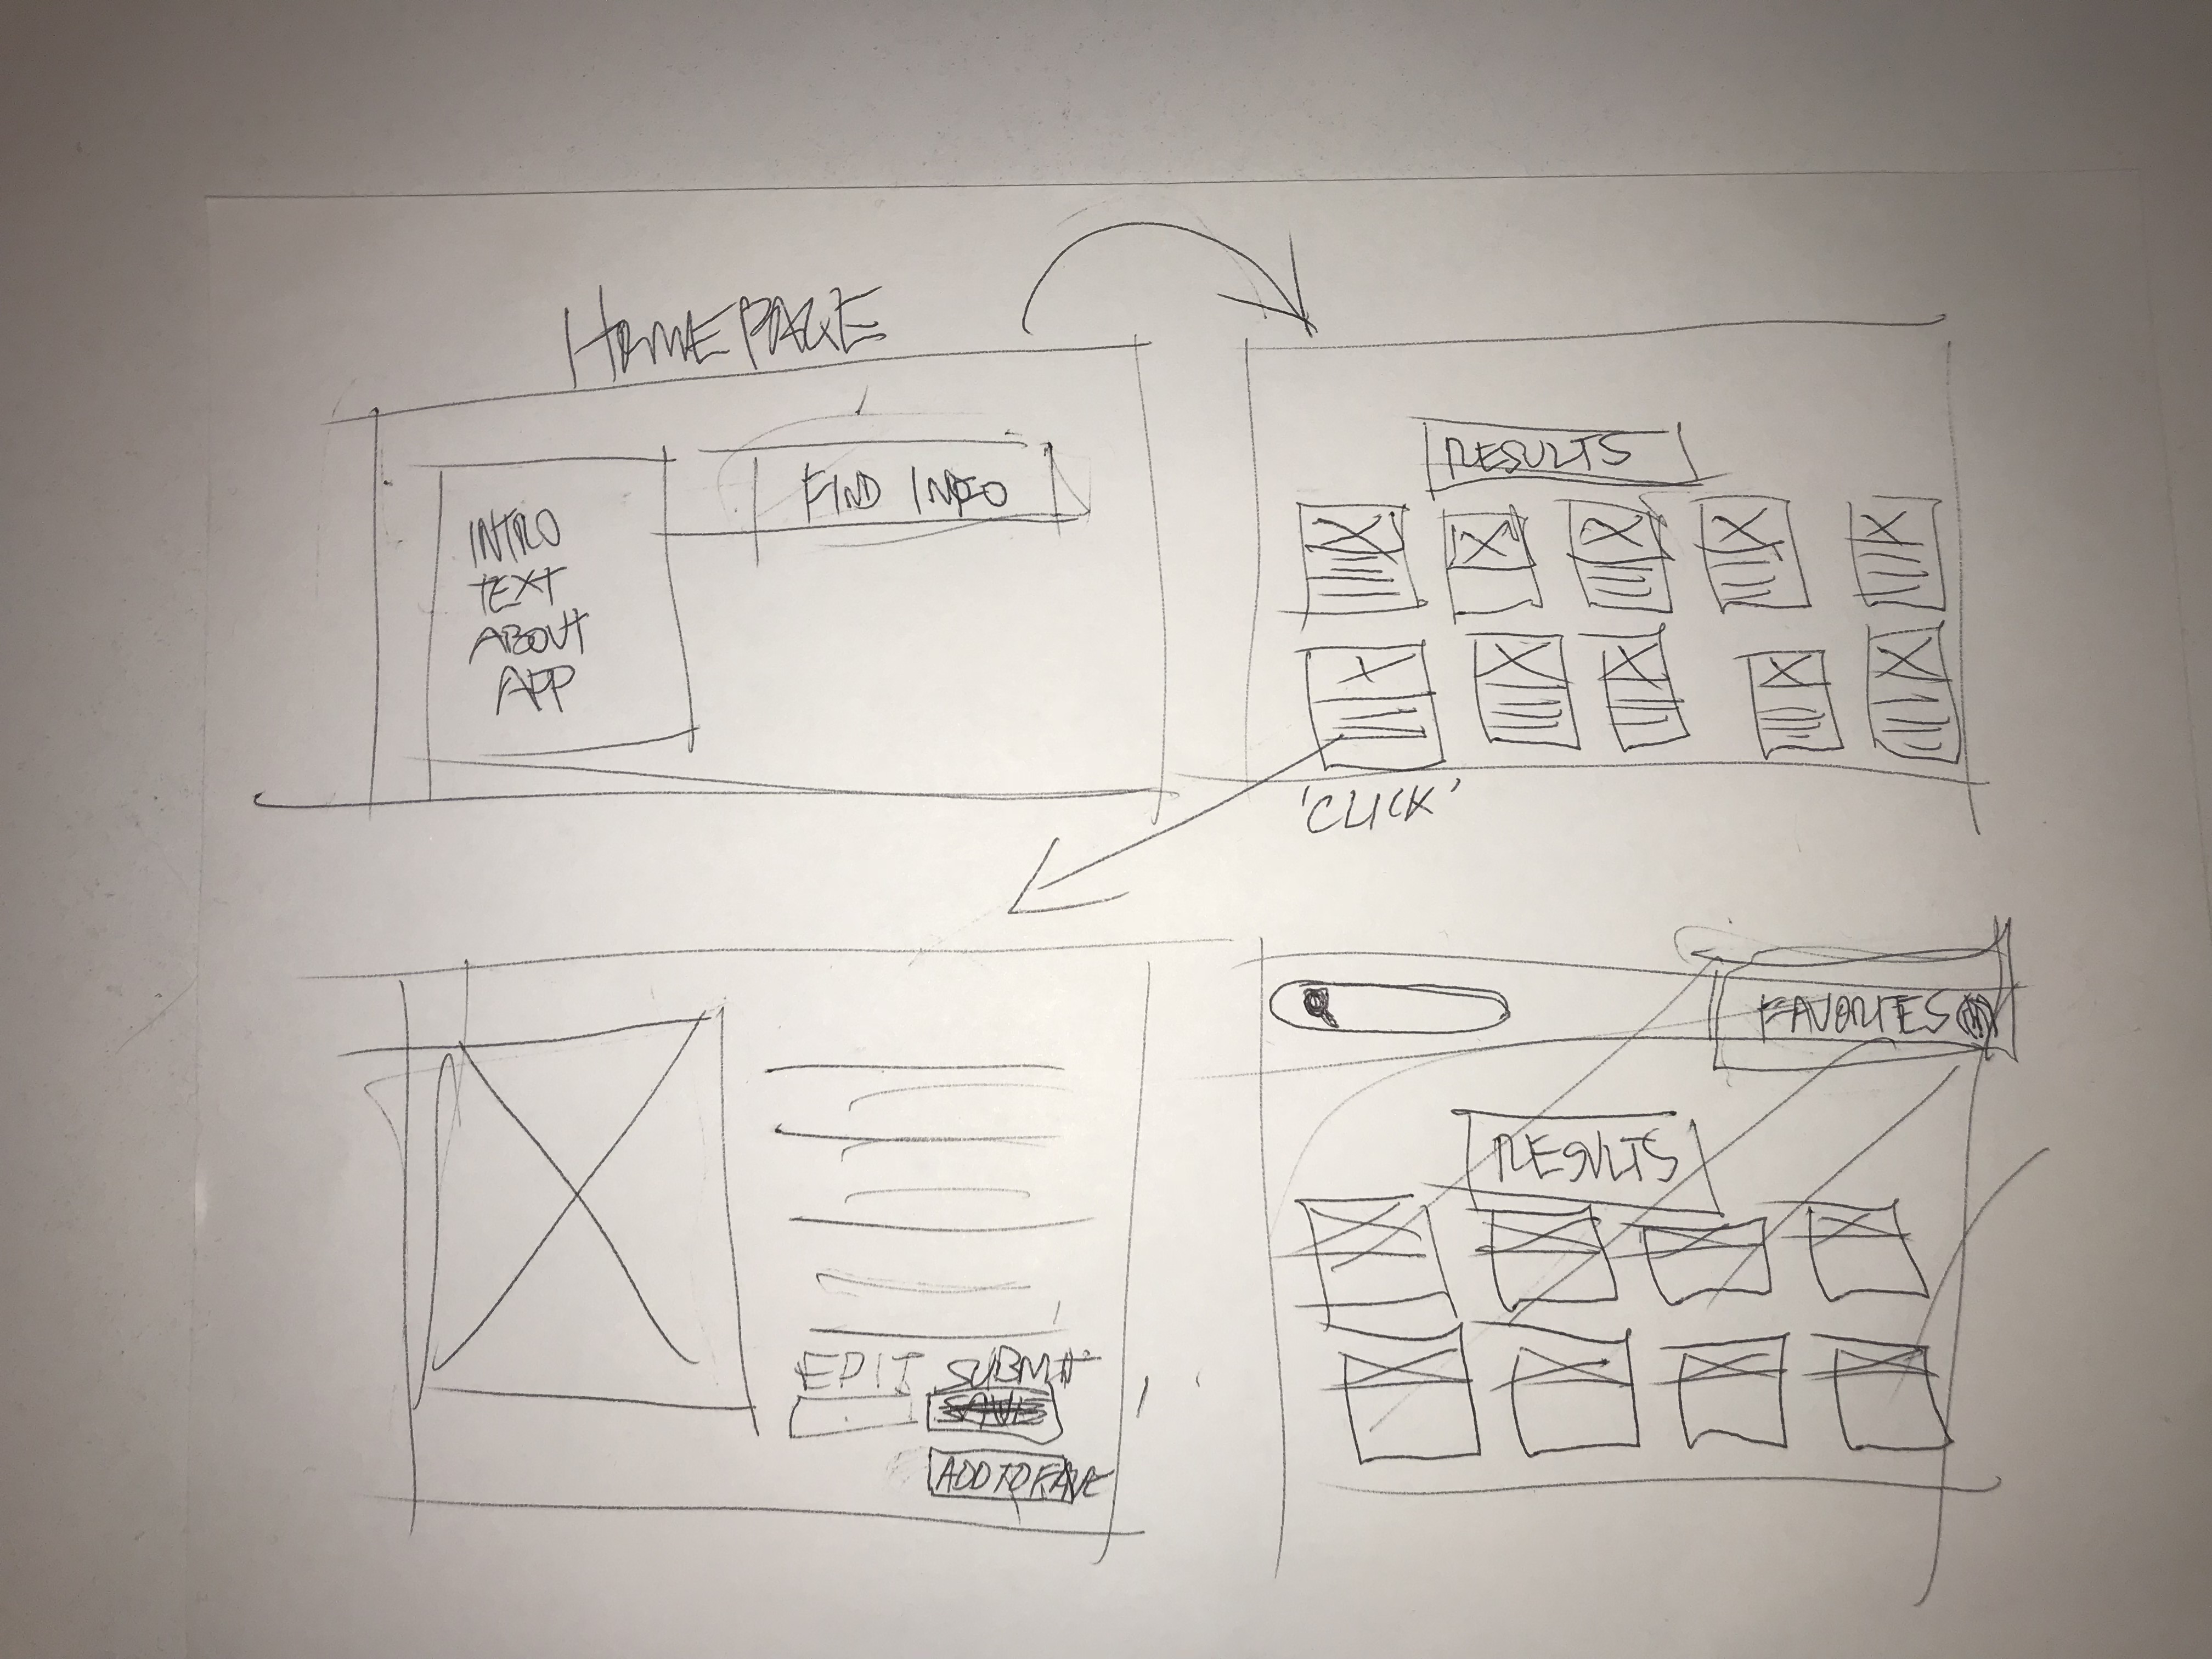 HOMEPAGE
FIND INFO
INTRO
TEXT
ABOUT
APP
RESULTS
'CLICK'
EDIT SUBMIT
SAVE
ADD TO FAVE
FAVORITES
RESULTS